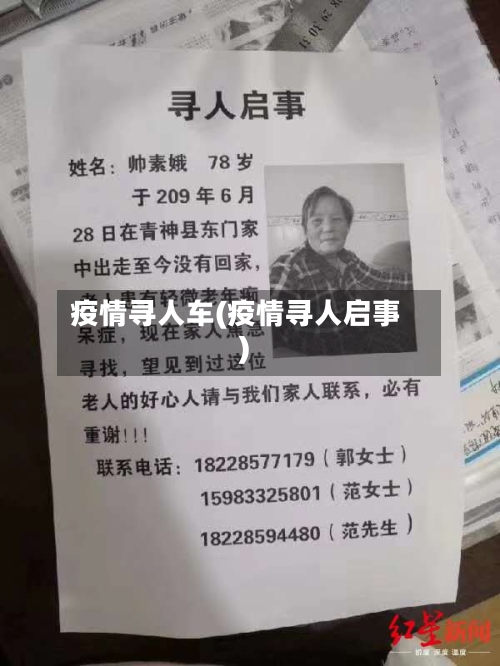 寻人启事
姓名：帅素娥 78岁
于209年6月
28日在青神县东门家
中出走至今没有回家，
患有轻微老年痴
疫情寻人车(疫情寻人启事
)
呆症，现在家人焦急
寻找，望见到过这位
老人的好心人请与我们家人联系，必有
重谢!!!
联系电话：18228577179（郭女士）
15983325801（范女士）
18228594480（范先生）
红星新闻
锐度 深度 温度